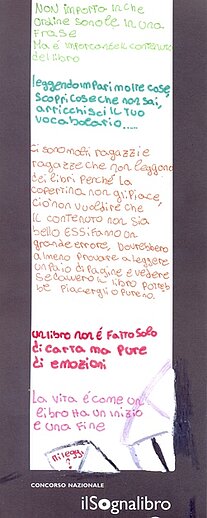 NON IMPORTA IN CHE
ORDINE SONO LE IN UNA
FRASE
MA È IMPORTANTE IL CONTENUTO
del libro
leggendo impari molte cose,
scopri cose che non sai,
arricchisci il tuo
vocabolario.....
Ci sono molti ragazzi e
ragazze che non leggono
dei libri perché la
copertina non gli piace,
ciò non vuol dire che
il contenuto non sia
bello ESSI fanno un
grande errore, Dovrebbero
almeno provare a leggere
un paio di pagine e vedere
se davvero il libro potreb
be piacergli o pure no.
un libro non é fatto solo
di carta ma pure
di emozioni
La vita é come un
libro ha un inizio
e una fine
mi leggi
?
CONCORSO NAZIONALE
ilSognalibro